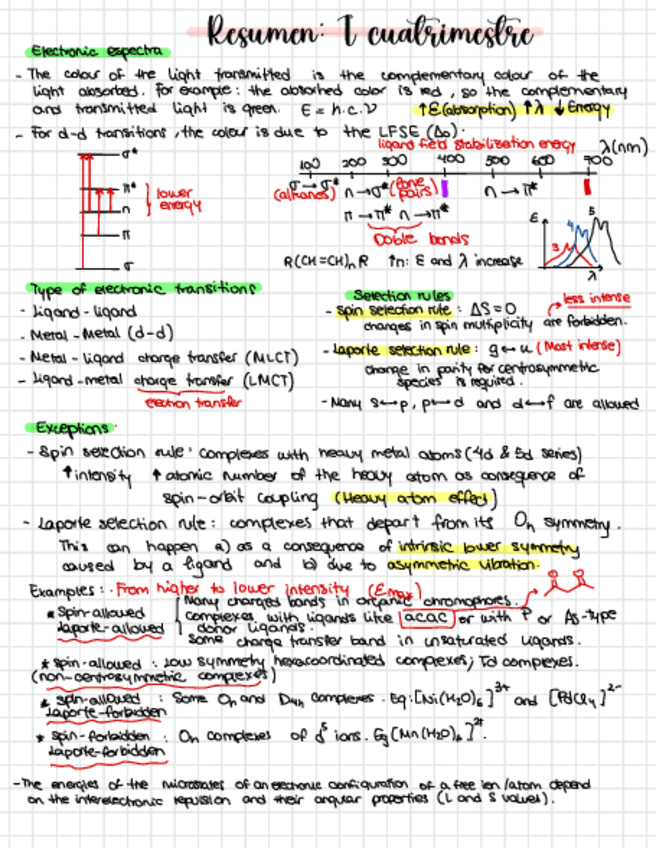 Resumen: I cuatrimestre
Electronic espectra
- The colour of the light transmitted is the complementary colour of the
light absorbed. For example: the absorbed color is red, so the complementary
and transmitted light is green. E = h.c.ν ↑E(absorption) ↑λ ↓Energy
- For d-d transitions, the colour is due to the LFSE (Δo).
ligand field stabilization energy λ(nm)
100 200 300 400 500 600 700
σ*
π*
n
π
σ
lower
energy
σ→σ* n→σ* (lone pairs) n→π*
(alkanes)
π→π* n→π*
Doble bonds
R(CH=CH)nR ↑n: ε and λ increase
ε
3 4 5
λ
Type of electronic transitions
- Ligand-ligand
- Metal-Metal (d-d)
- Metal-ligand charge transfer (MLCT)
- Ligand-metal charge transfer (LMCT)
electron transfer
Selection rules
less intense
- Spin selection rule: ΔS=0
changes in spin multiplicity are forbidden.
- Laporte selection rule: g↔u (Most intense)
change in parity for centrosymmetric
species is required.
- Many s↔p, p↔d and d↔f are allowed
Exceptions
- Spin selection rule: complexes with heavy metal atoms (4d & 5d series)
↑intensity ↑atomic number of the heavy atom as consequence of
spin-orbit coupling (Heavy atom effect)
- Laporte selection rule: complexes that depart from its Oh symmetry.
This can happen a) as a consequence of intrinsic lower symmetry
caused by a ligand and b) due to asymmetric vibration.
Examples: · From higher to lower intensity (Emax)
* Spin-allowed
Laporte-allowed
Many charged bands in organic chromophores.
complexes with ligands like acac or with P or As-type
donor ligands.
Some charge transfer band in unsaturated ligands.
* spin-allowed: low symmetry hexacoordinated complexes; Td complexes.
(non-centrosymmetric complexes)
* spin-allowed: Some Oh and D4h complexes. Eg: [Ni(H2O)6]2+ and [PdCl4]2-
Laporte-forbidden
* Spin-forbidden: Oh complexes of d5 ions. Eg [Mn(H2O)6]2+.
Laporte-forbidden
- The energies of the microstates of an electronic configuration of a free ion/atom depend
on the interelectronic repulsion and their angular properties (L and S values).